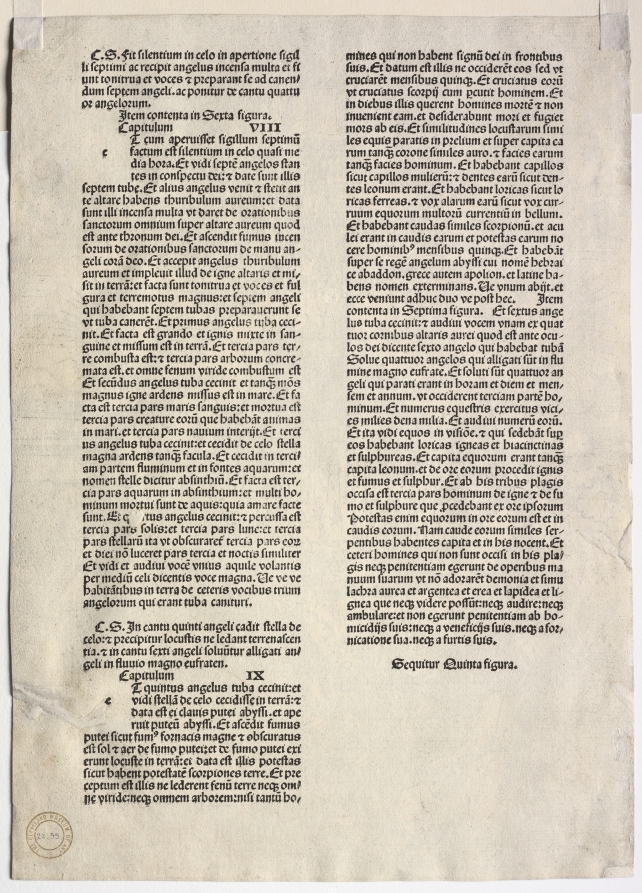 C.S. Fit silentium in celo in apertione sigil
li septimi ac recipit angelus incensa multa et fi
unt tonitrua et voces ⁊ preparant se ad canen/
dum septem angeli. ac ponitur de cantu quattu
or angelorum.
Item contenta in Sexta figura.
Capitulum VIII
e T cum aperuisset sigillum septimũ
factum est silentium in celo quasi me
dia hora. Et vidi septẽ angelos stan
tes in conspectu dei: ⁊ date sunt illis
septem tube. Et alius angelus venit ⁊ stetit an
te altare habens thuribulum aureum: et data
sunt illi incensa multa vt daret de orationibus
sanctorum omnium super altare aureum quod
est ante thronum dei. Et ascendit fumus incen
sorum de orationibus sanctorum de manu an-
geli corã deo. Et accepit angelus thuribulum
aureum et impleuit illud de igne altaris et mi/
sit in terrã: et facta sunt tonitrua et voces et ful
gura et terremotus magnus: et septem angeli
qui habebant septem tubas preparauerunt se
vt tuba canerẽt. Et primus angelus tuba ceci-
nit. Et facta est grando et ignis mixte in san-
guine et missum est in terrã. Et tercia pars ter-
re combusta est: ⁊ tercia pars arborum concre-
mata est. et omne fenum viride combustum est
Et secũdus angelus tuba cecinit et tanq̃ mõs
magnus igne ardens missus est in mare. Et fa
cta est tercia pars maris sanguis: et mortua est
tercia pars creature eorũ que habebãt animas
in mari. et tercia pars nauium interijt. Et terci
us angelus tuba cecinit: et cecidit de celo stella
magna ardens tanq̃ facula. Et cecidit in terci/
am partem fluminum et in fontes aquarum: et
nomen stelle dicitur absinthiũ. Et facta est ter-
cia pars aquarum in absinthium: et multi ho/
minum mortui sunt de aquis: quia amare facte
sunt. Et q tus angelus cecinit: ⁊ percussa est
tercia pars solis: et tercia pars lune: et tercia
pars stellarũ ita vt obscuraret̃ tercia pars eoꝝ
et diei nõ luceret pars tercia et noctis similiter
Et vidi et audiui vocẽ vnius aquile volantis
per mediũ celi dicentis voce magna. Ue ve ve
habitãtibus in terra de ceteris vocibus trium
angelorum qui erant tuba canituri.
C.S. In cantu quinti angeli cadit stella de
celo: ⁊ precipitur locustis ne ledant terrenascen
tia. ⁊ in cantu sexti angeli soluũtur alligati an/
geli in fluuio magno eufraten.
Capitulum IX
e T quintus angelus tuba cecinit: et
vidi stellã de celo cecidisse in terrã: ⁊
data est ei clauis putei abyssi. et ape
ruit puteũ abyssi. Et ascẽdit fumus
putei sicut fumꝰ fornacis magne ⁊ obscuratus
est sol ⁊ aer de fumo putei: et de fumo putei exi
erunt locuste in terrã: et data est illis potestas
sicut habent potestatẽ scorpiones terre. Et pre
ceptum est illis ne lederent fenũ terre neqꝫ om/
ne viride: neqꝫ omnem arborem: nisi tantũ ho/
mines qui non habent signũ dei in frontibus
suis. Et datum est illis ne occiderẽt eos sed vt
cruciarẽt mensibus quinqꝫ. Et cruciatus eorũ
vt cruciatus scorpij cum ꝑcutit hominem. Et
in diebus illis querent homines mortẽ ⁊ non
inuenient eam. et desiderabunt mori et fugiet
mors ab eis. Et similitudines locustarum simi
les equis paratis in prelium et super capita ea
rum tanq̃ corone similes auro. ⁊ facies earum
tanq̃ facies hominum. Et habebant capillos
sicut capillos mulierũ: ⁊ dentes earũ sicut den-
tes leonum erant. Et habebant loricas sicut lo
ricas ferreas. ⁊ vox alarum earũ sicut vox cur-
ruum equorum multorũ currentiũ in bellum.
Et habebant caudas similes scorpionũ. et acu
lei erant in caudis earum et potestas earum no
cere hominibꝰ mensibus quinqꝫ. Et habebãt
super se regẽ angelum abyssi cui nomẽ hebrai
ce abaddon. grece autem apolion. et latine ha-
bens nomen exterminans. Ue vnum abijt. et
ecce veniunt adhuc duo ve post hec. Item
contenta in Septima figura. Et sextus ange
lus tuba cecinit: ⁊ audiui vocem vnam ex quat
tuor cornibus altaris aurei quod est ante ocu-
los dei dicente sexto angelo qui habebat tubã
Solue quattuor angelos qui alligati sũt in flu
mine magno eufrate. Et soluti sũt quattuor an
geli qui parati erant in horam et diem et men-
sem et annum. vt occiderent terciam partẽ ho/
minum. Et numerus equestris exercitus vici/
es milies dena milia. Et audiui numerũ eorũ.
Et ita vidi equos in visiõe. ⁊ qui sedebãt sup
eos habebant loricas igneas et hiacinctinas
et sulphureas. Et capita equorum erant tanq̃
capita leonum. et de ore eorum procedit ignis
et fumus et sulphur. Et ab his tribus plagis
occisa est tercia pars hominum de igne ⁊ de fu
mo et sulphure que ꝓcedebant ex ore ipsorum
Potestas enim equorum in ore eorum est et in
caudis eorum. Nam caude eorum similes ser-
pentibus habentes capita et in his nocent. Et
ceteri homines qui non sunt occisi in his pla/
gis neqꝫ penitentiam egerunt de operibus ma
nuum suarum vt nõ adorarẽt demonia et simu
lachra aurea et argentea et erea et lapidea et li-
gnea que neqꝫ videre possũt: neqꝫ audire: neqꝫ
ambulare: et non egerunt penitentiam ab ho-
micidijs suis: neqꝫ a veneficijs suis. neqꝫ a for/
nicatione sua. neqꝫ a furtis suis.
Sequitur Quinta figura.